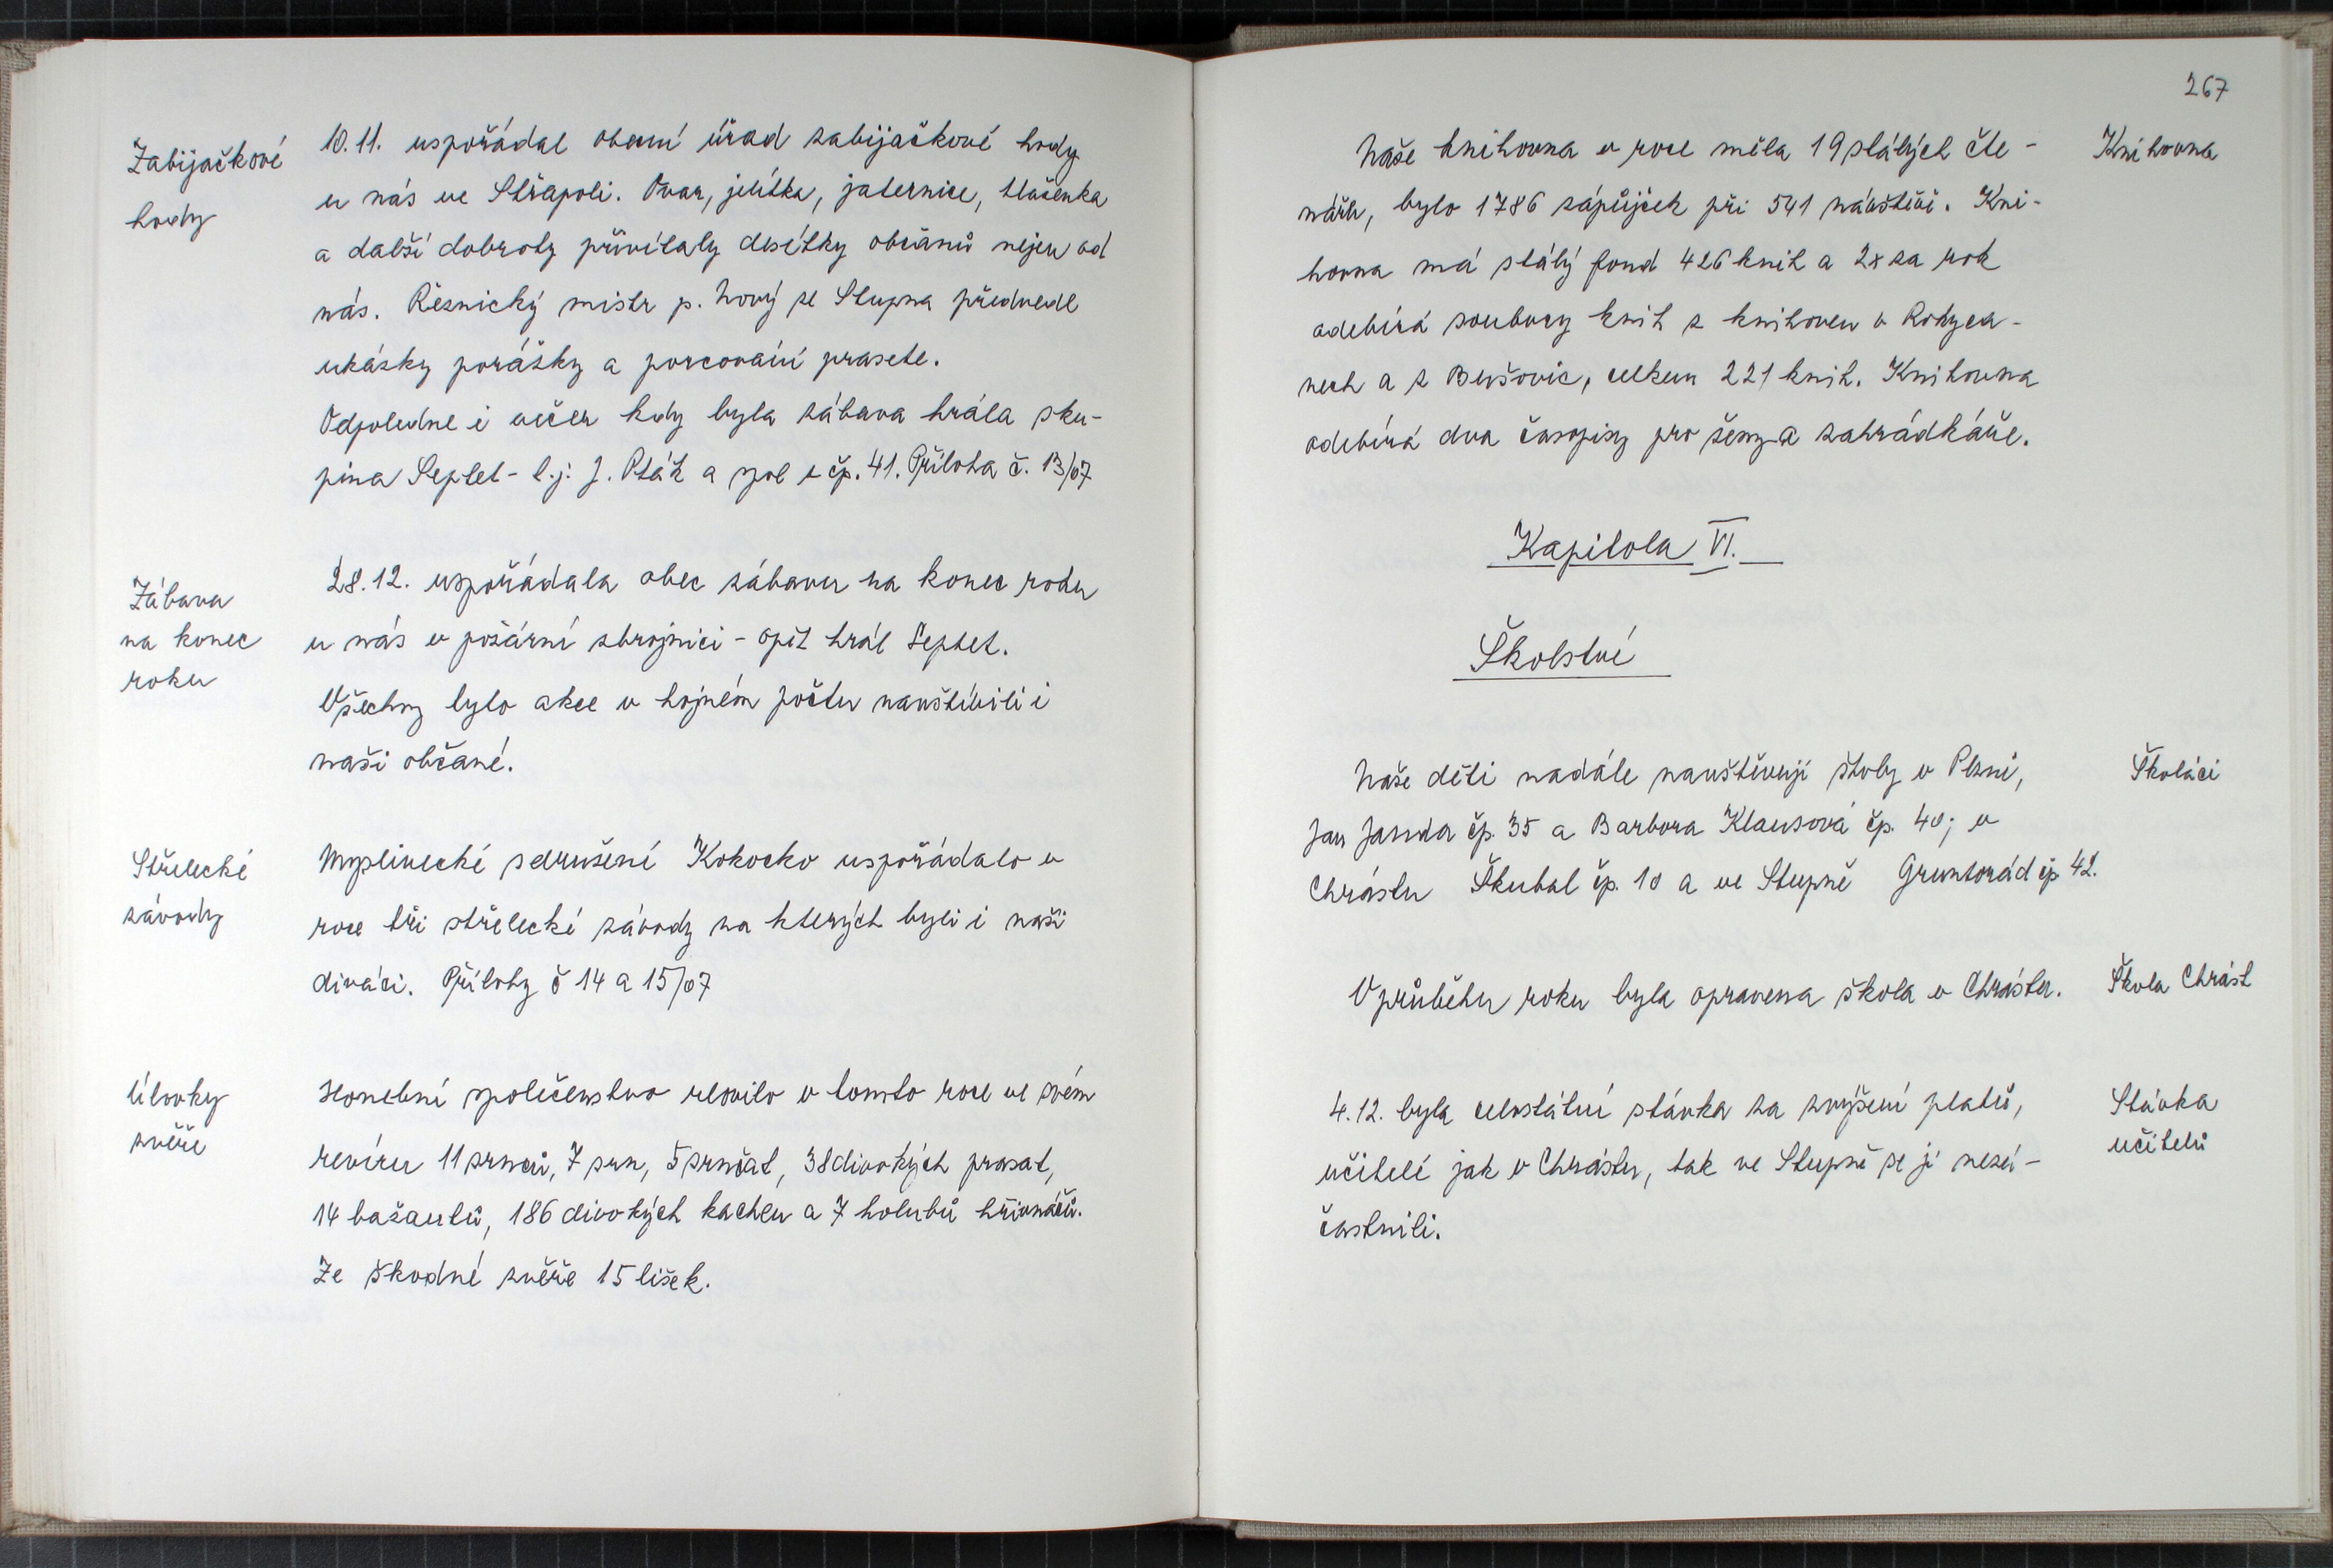 Zabijačkové
hody
10.11. uspořádal obecní úřad zabijačkové hody
u nás ve Střapoli. Ovar, jelítka, jaternice, tlačenka
a další dobroty přivítaly desítky občanů nejen od
nás. Řeznický mistr p. Nový ze Stupna předvedl
ukázky porážky a porcování prasete.
Odpoledne i večer kdy byla zábava hrála sku-
pina Septet - t.j. J. Pták a spol z čp. 41. Příloha č. 13/07
Zábava
na konec
roku
28.12. uspořádala obec zábavu na konec roku
u nás v požární zbrojnici - opět hrál Septet.
Všechny tyto akce v hojném počtu navštívili i
naši občané.
Střelecké
závody
Myslivecké sdružení Kokocko uspořádalo v
roce tři střelecké závody na kterých byli i naši
diváci. Přílohy č 14 a 15/07
Úlovky
zvěře
Honební společenstvo ulovilo v tomto roce ve svém
revíru 11 srnců, 7 srn, 5 srnčat, 38 divokých prasat,
14 bažantů, 186 divokých kachen a 7 holubů hřivnáčů.
Ze škodné zvěře 15 lišek.
267
Knihovna
Naše knihovna v roce měla 19 stálých čte-
nářů, bylo 1786 zápůjček při 541 návštěvě. Kni-
hovna má stálý fond 426 knih a 2x za rok
odebírá soubory knih z knihoven v Rokyca-
nech a z Bušovic, celkem 221 knih. Knihovna
odebírá dva časopisy pro ženy a zahrádkáře.
Kapitola VI.
Školství
Školáci
Naše děti nadále navštěvují školy v Plzni,
Jan Janda čp. 35 a Barbora Klausová čp. 40; v
Chrástu Škubal čp. 10 a ve Stupně Gruntorád čp 42.
Škola Chrást
V průběhu roku byla opravena škola v Chrástu.
Stávka
učitelů
4.12. byla celostátní stávka za zvýšení platů,
učitelé jak v Chrástu, tak ve Stupně se jí nezú-
častnili.